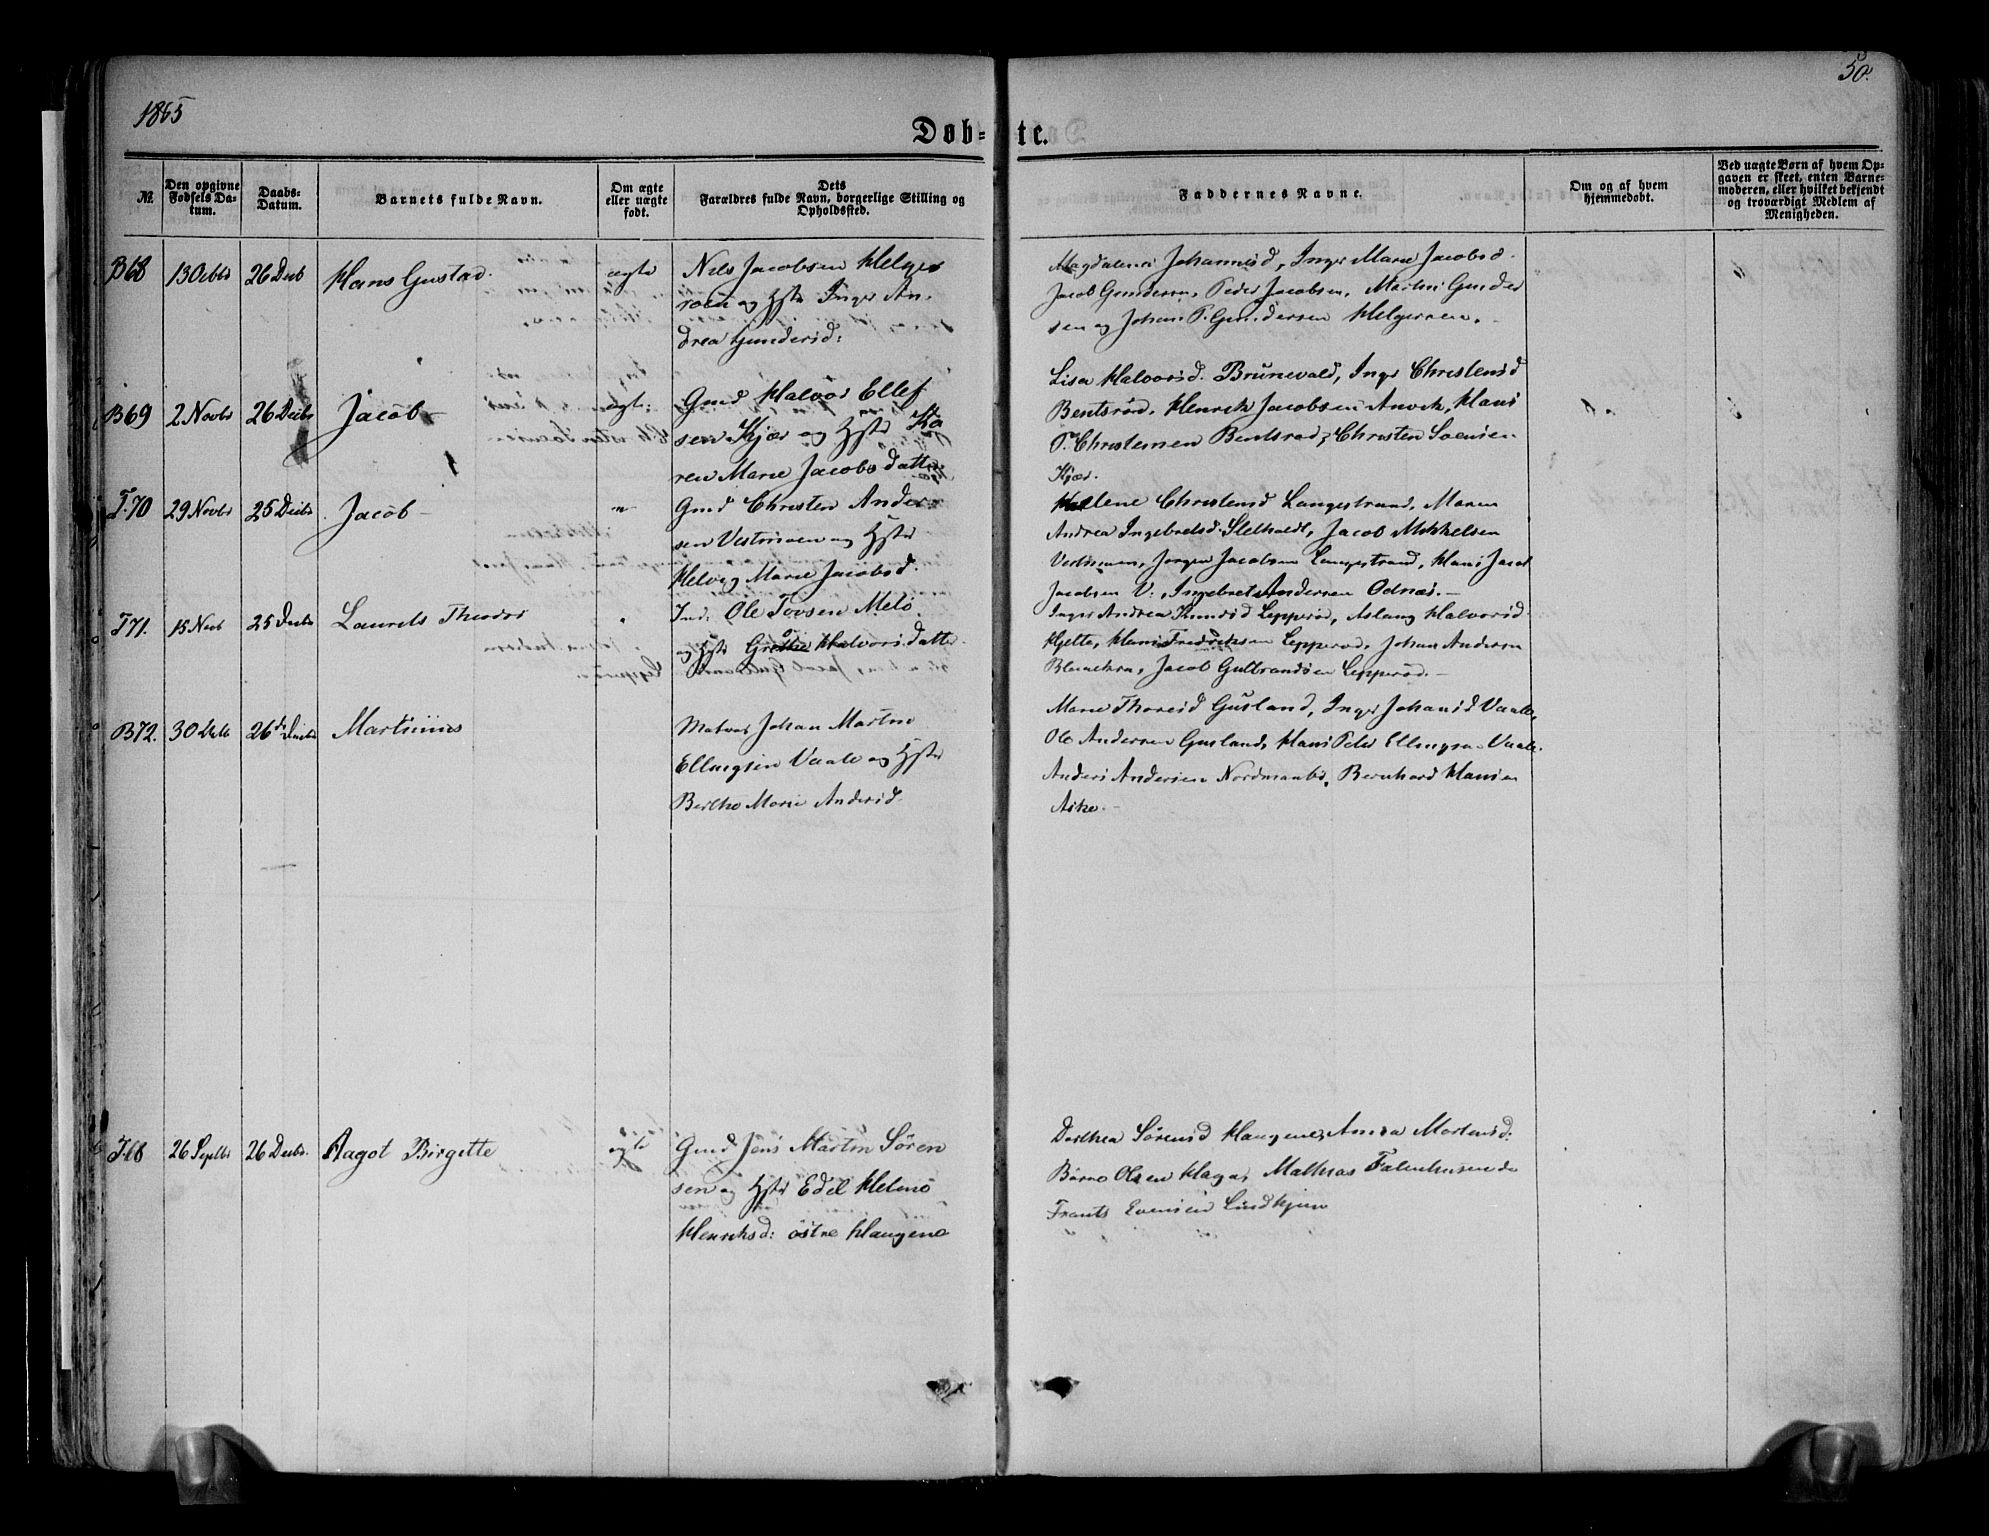 1865
50.
Døb-te.
№.
Den opgivne Fødsels Datum.
Daabs-Datum.
Barnets fulde Navn.
Om ægte eller uægte født.
Dets Forældres fulde Navn, borgerlige Stilling og Opholdssted.
Faddernes Navne.
Om og af hvem hjemmedøbt.
Ved uægte Børn af hvem Opgaven er skeet, enten Barnemoderen, eller hvilket bekjendt og troværdigt Medlem af Menigheden.
B68 13 Octbr 26 Decb Hans Gustav. ægte Nils Jacobsen Helger
roen og Hstr Inger An-
drea Gundersd:
Magdalene Johannesd, Inger Marie Jacobsd.
Jacob Gundersen, Peder Jacobsen, Martin Gunder
sen og Johan P. Gundersen Helgeroen.
B69 2 Novbr 26 Decbr Jacob ægte Gmd Halvor Ellef
sen Kjær og Hstr Ka
ren Marie Jacobsdatter
Lisa Halvorsd. Brunevald, Inger Christensd
Bentsrød, Henrik Jacobsen Anvik, Hans
P. Christensen Bentsrød, Christen
Kjær.
T.70 29 Novbr 25 Decbr Jacob " Gmd Christen Ander
sen Vestmoen og Hstr
Helvig Marie Jacobsd.
Helene Christensd Langestrand, Maren
Andrea Ingebretsd. Jacob Mikkelsen
Jørgen Jacobsen Langestrand, Hans Jacob
Jacobsen V:, Ingebret Andersen Odnæs.
T71. 15 Novb 25 Decbr Laurits Theodor " Ind: Ole Tovsen Melø
og Hstr Grethe Halvorsdatter
Inger Andrea Knudsd Lepperød, Aslaug Halvorsd
Hans Fredriksen Lepperød, Johan Andersen
Jacob Gulbrandsen Lepperød.
B72. 30 26de Decbr Martinius Matros Johan Martin
Ellingsen Vaale og Hstr
Berthe Marie Andersd.
Maren Thoresd Gusland, Inger Johansd Vaale,
Ole Andersen Gusland, Hans Peder Ellingsen Vaale
Anders Andersen Bernhard Hansen
Aske.
T68 26 Septbr 26 Decbr. Aagot Birgitte ægte Gmd Jens Martin Søren
sen og Hstr Edel Helene
Henriksd: østre Haugene
Dorthea Sørensd Haugene, Anna Martensd:
Olsen Mathias
Frants Evensen